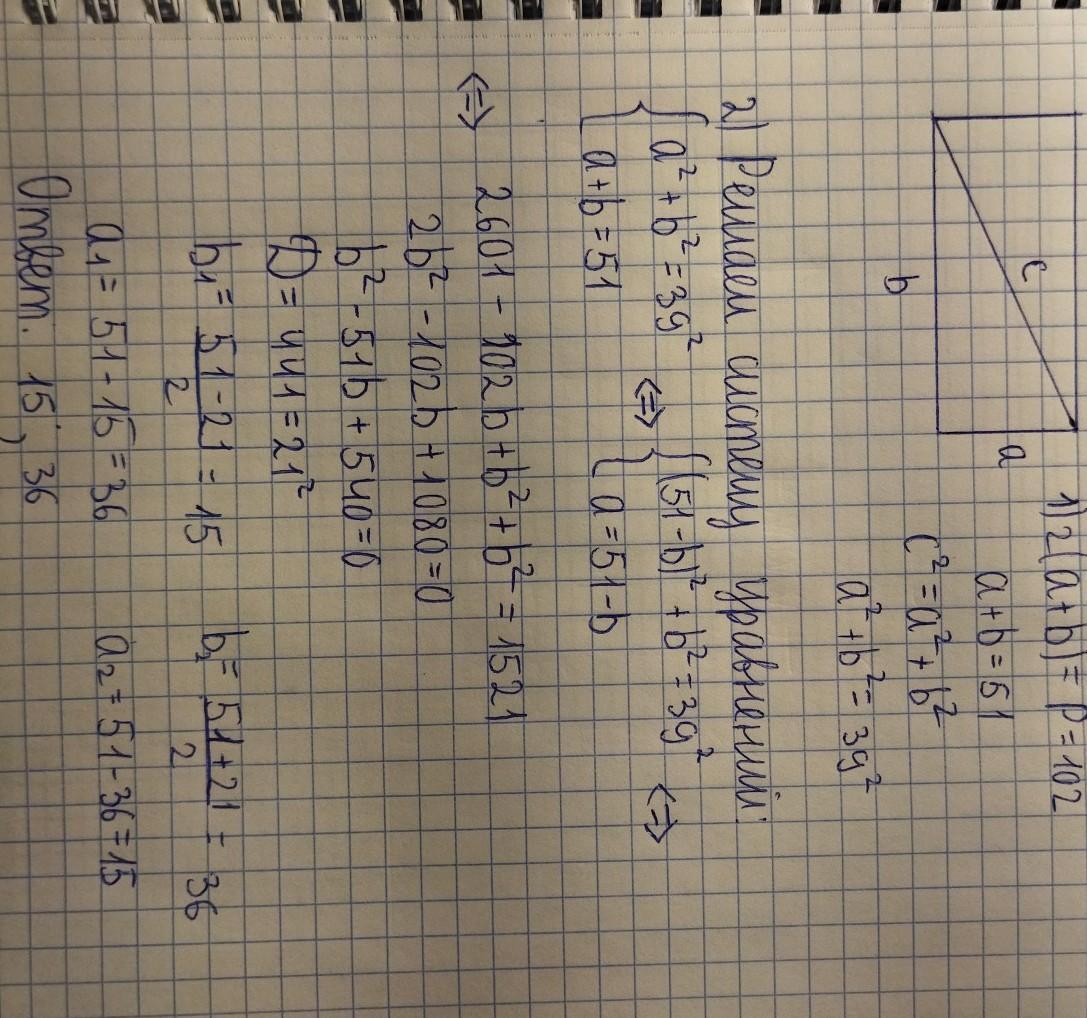 c
b
a
1) 2(a+b) = P = 102
a+b = 51
c² = a² + b²
a² + b² = 39²
2) Решаем систему уравнений:
{ a² + b² = 39² <=> { (51-b)² + b² = 39² <=>
a+b = 51 a = 51-b
<=> 2601 - 102b + b² + b² = 1521
2b² - 102b + 1080 = 0
b² - 51b + 540 = 0
D = 441 = 21²
b₁ = (51-21)/2 = 15 b₂ = (51+21)/2 = 36
a₁ = 51 - 15 = 36 a₂ = 51 - 36 = 15
Ответ. 15, 36